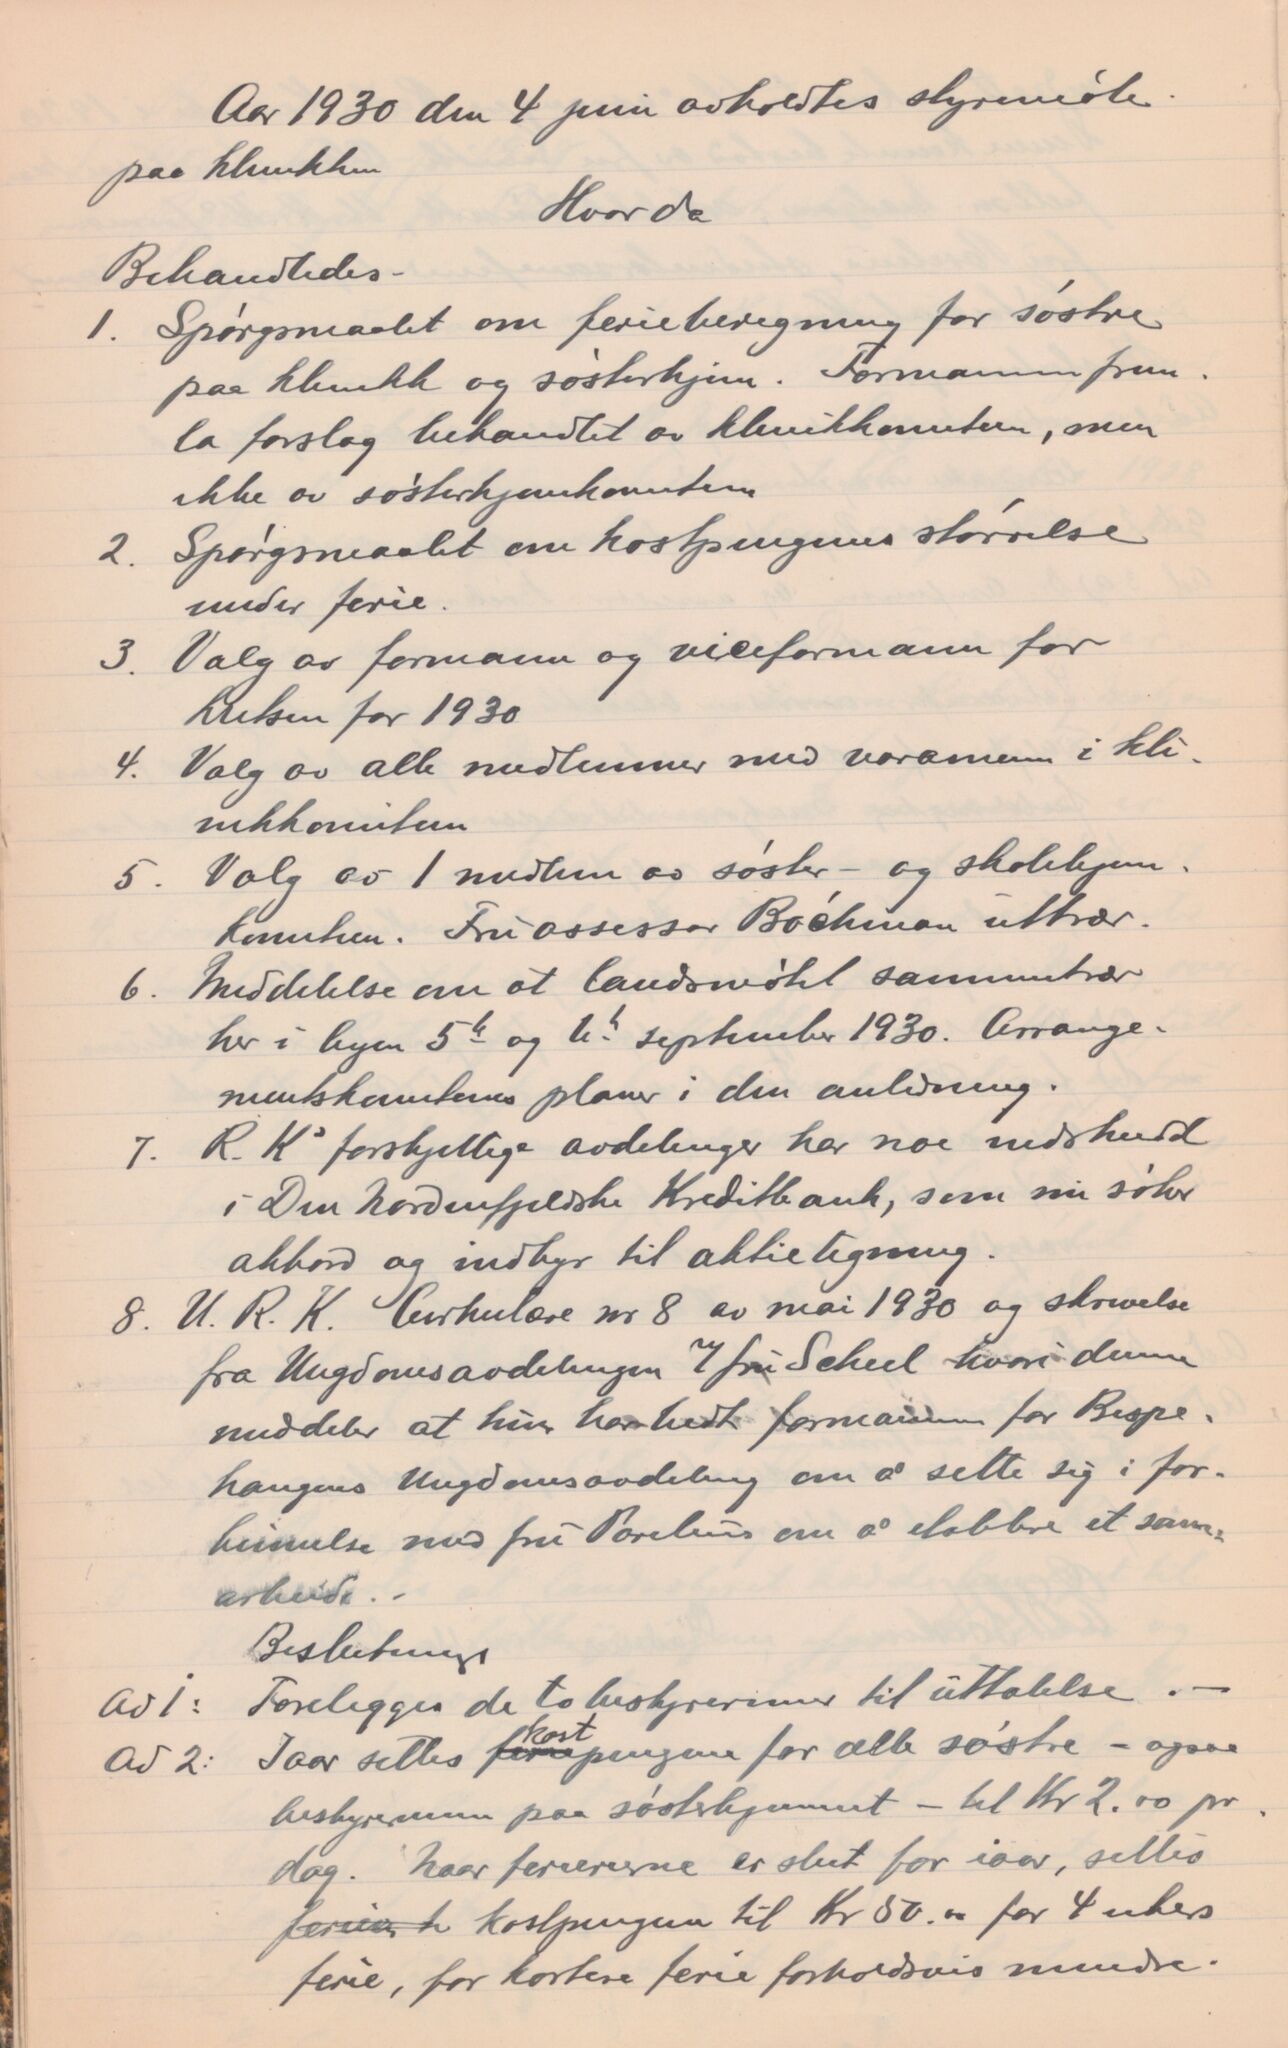 Aar 1930 den 4 juni avholdtes styremöte
paa klinikken
Hvorda
Behandledes -
1. Spörgsmaalet om ferieberegning for söstre
paa klinikk og sösterhjem. Formannen frem-
la forslag behandlet av klinikkomiteen, men
ikke av sösterhjemkomiteen
2. Spörgsmaalet om kostpengenes störrelse
under ferie.
3. Valg av formann og viceformann for
kretsen for 1930
4. Valg av alle medlemmer med varamenn i kli-
nikkomiteen
5. Valg av 1 medlem av söster- og skolehjem-
komiteen. Fru assessor Böchman uttrær.
6. Meddelelse om at landsmötet sammentrær
her i byen 5te og 6te september 1930. Arrange-
mentskomiteens planer i den anledning.
7. R. Ks forskjellige avdelinger har noe innskudd
i Den Nordenfjeldske Kreditbank, som nu söker
akkord og indbyr til aktietegning.
8. U. R. K. Cirkulære nr 8 av mai 1930 og skrivelse
fra Ungdomsavdelingen v/ fru Scheel hvori denne
meddeler at hun har bedt formannen for Bispe-
haugens Ungdomsavdeling om å sette sig i for-
bindelse med fru Parelius om å etablere et sam-
arbeide. -
Beslutninger
Ad 1: Forelegges de to bestyrerinner til uttalelse. -
Ad 2: Iaar settes ferie kostpengene for alle söstre - ogsaa
bestyrerinnen paa sösterhjemmet - til Kr 2.00 pr.
dag. Naar ferierne er slut for iaar, settes
ferien k kostpengene til Kr 50.00 for 4 ukers
ferie, for kortere ferie forholdsvis mindre.